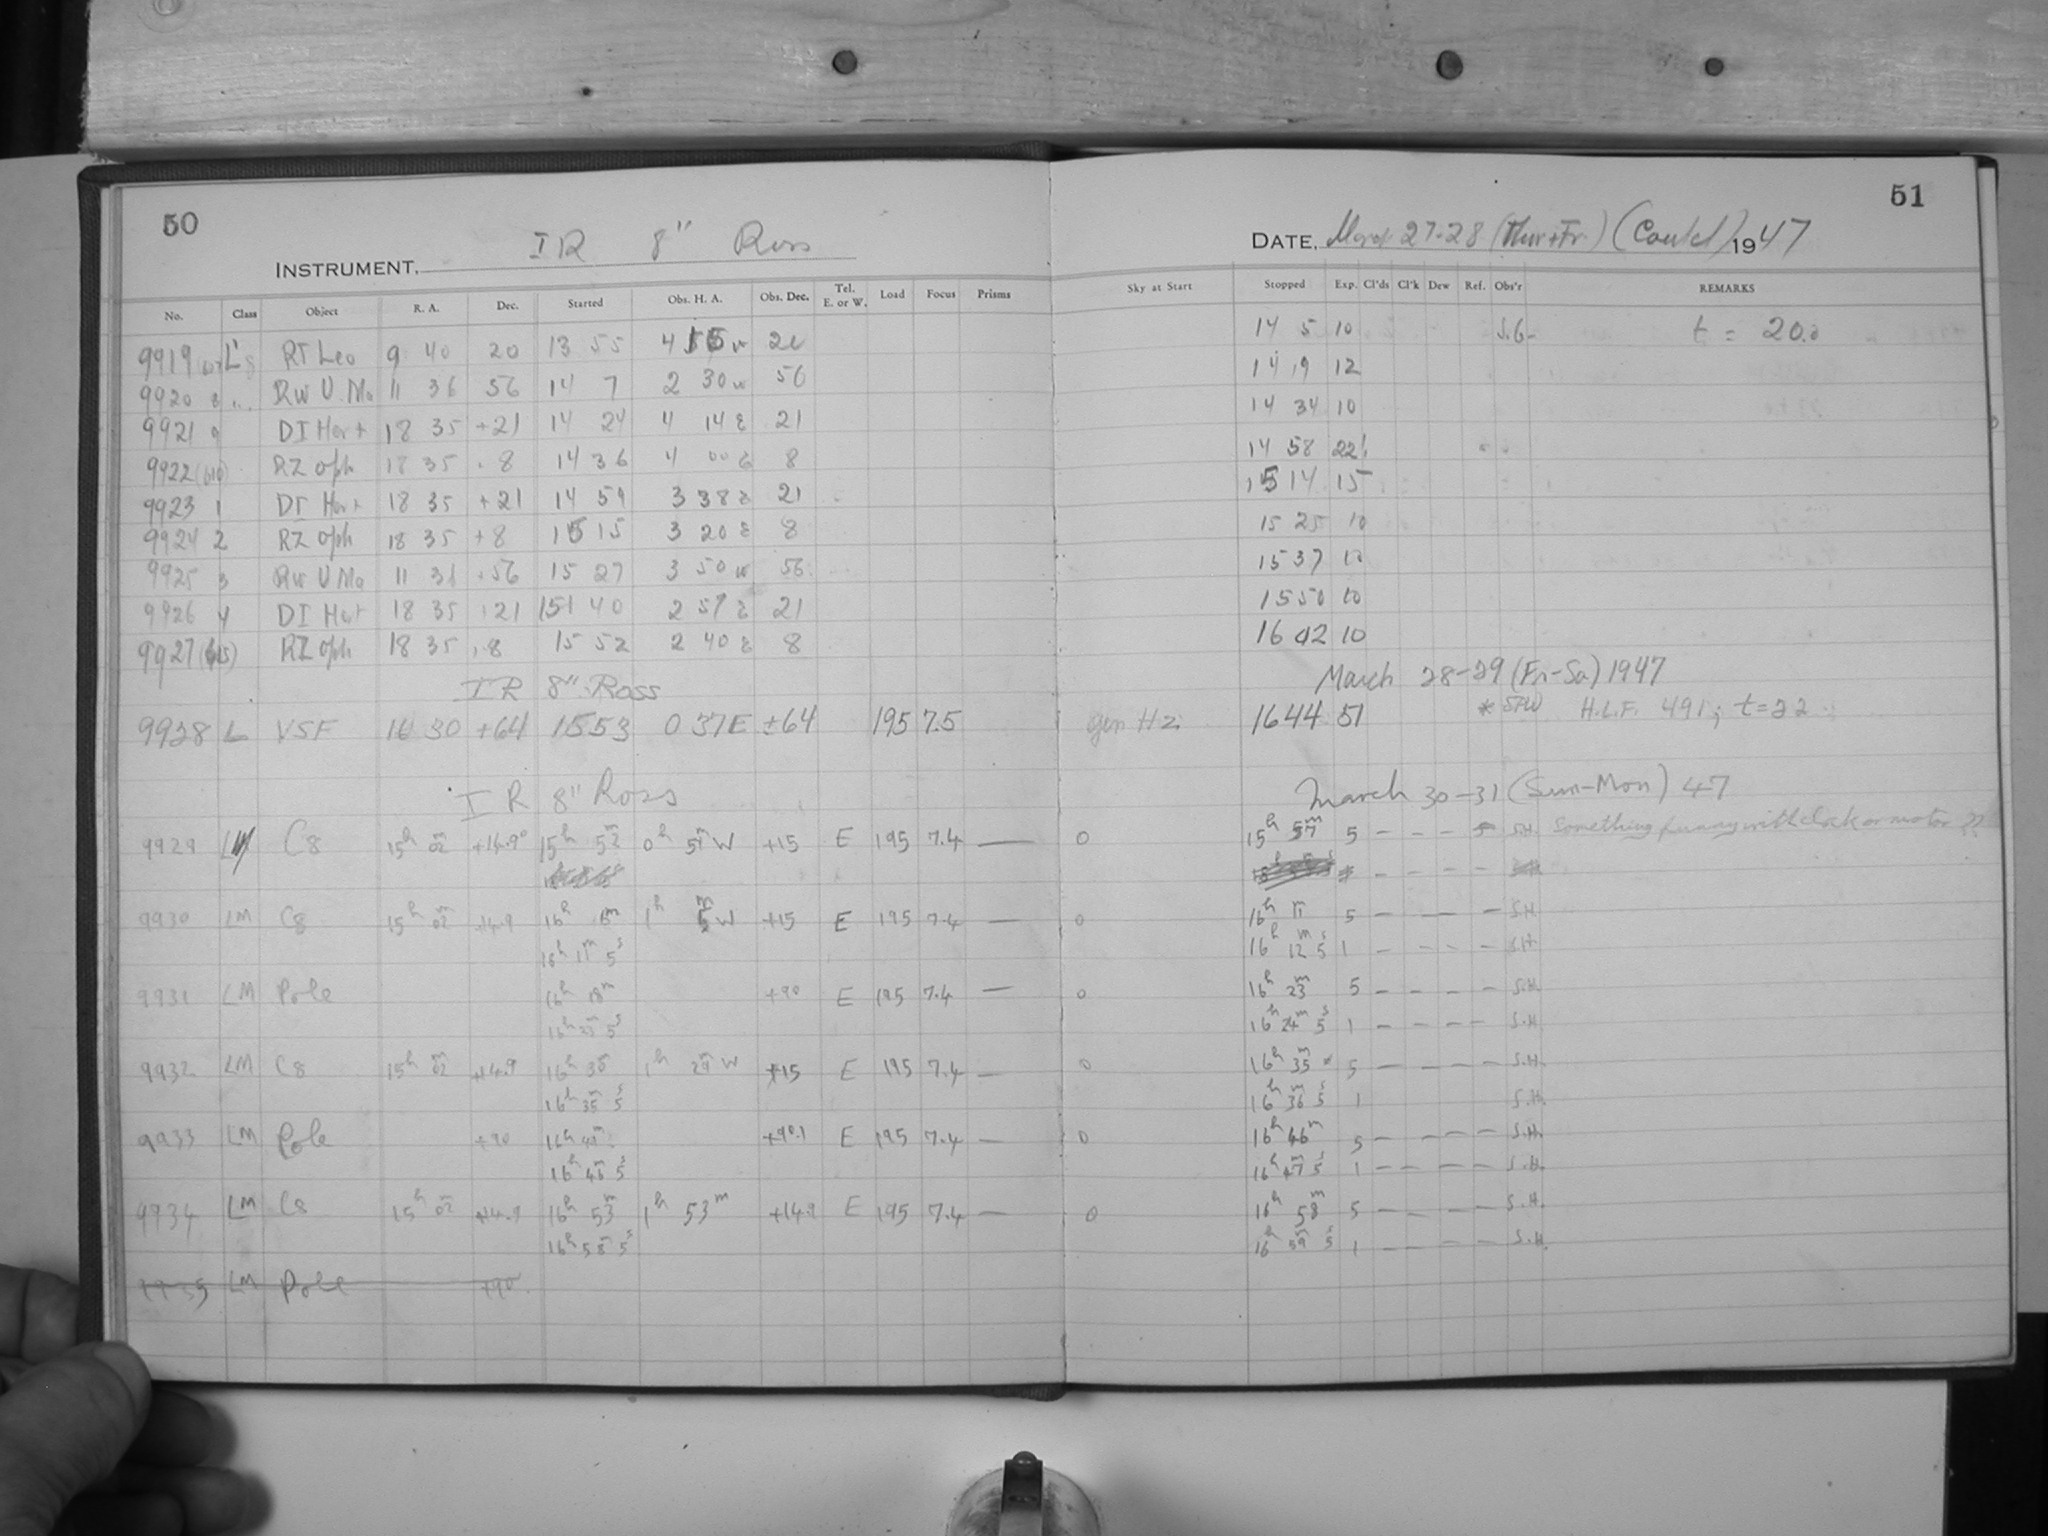 50
51
INSTRUMENT, IR 8" Ross
DATE, March 27-28 (Thur-Fr) (Cont'd) 1947
No. Class Object R. A. Dec. Started Obs. H. A. Obs. Dec. Tel. E. or W. Load Focus Prisms Sky at Start Stopped Exp. Cl'ds Cl'k Dew Ref. Obs'r REMARKS
9919 L RT Leo 9 40 20 13 55 4 15 w 20 14 5 10 S.G. t = 20.
9920 8 " RW U.Ma 11 36 56 14 7 2 30 w 56 14 19 12
9921 9 DI Her 18 35 +21 14 24 4 14 E 21 14 34 10
9922 (610) RZ Oph 18 35 8 14 36 4 00 E 8 14 58 22
9923 1 DI Her 18 35 +21 14 59 3 38 E 21 15 14 15
9924 2 RZ Oph 18 35 +8 15 15 3 20 E 8 15 25 10
9925 3 RW U Ma 11 36 +56 15 27 3 50 w 56 15 37 10
9926 4 DI Her 18 35 21 15 40 2 57 E 21 15 50 10
9927 (615) RZ Oph 18 35 8 15 52 2 40 E 8 16 02 10
IR 8" Ross March 28-29 (Fri-Sa) 1947
9928 L VSF 16 30 +64 1553 0 37E +64 195 7.5 gen Hz. 1644 51 * H.L.F. 491; t=22
IR 8" Ross March 30-31 (Sun-Mon) 47
9929 LM C8 15h 02m +14.9° 15h 52m 0h 51m W +15 E 195 7.4 — 0 15h 57m 5 — — — S.H. Something funny with clock or motor ??
9930 LM C8 15h 02m +14.9 16h 6m 1h 5m W +15 E 195 7.4 — 0 16h 11 5 — — — S.H.
16h 11m 5s 16h 12m 5s 1 — — — — S.H.
9931 LM Pole 16h 18m +90 E 195 7.4 — 0 16h 23m 5 — — — — S.H.
16h 23m 5s 16h 24m 5s 1 — — — — S.H.
9932 LM C8 15h 02m +14.9 16h 30 1h 29m W +15 E 195 7.4 — 0 16h 35m 5 — — — — S.H.
16h 35m 5s 16h 36m 5s 1 S.H.
9933 LM Pole +90 16h 41m +90.1 E 195 7.4 — 0 16h 46m 5 — — — — S.H.
16h 46m 5s 16h 47m 5s 1 — — — — S.H.
9934 LM C8 15h 02m +14.9 16h 53m 1h 53m +14.9 E 195 7.4 — 0 16h 58m 5 — — — — S.H.
16h 58 5s 16h 59m 5s 1 — — — — S.H.
9935 LM Pole +90